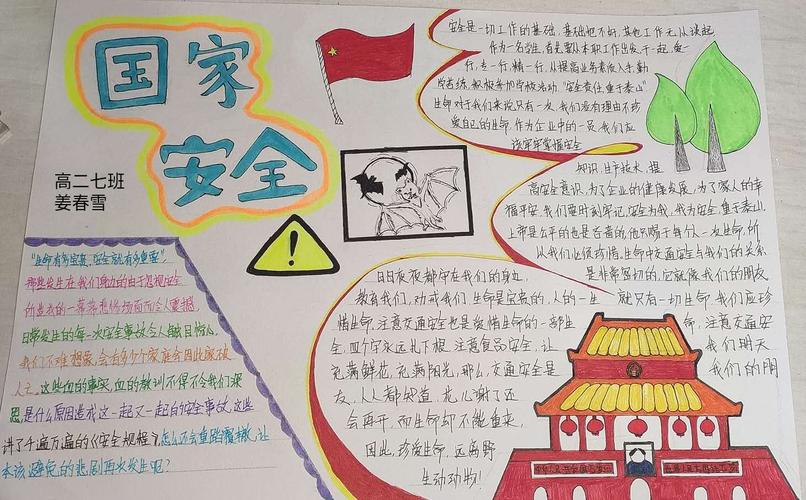 国家
安全
高二七班
姜春雪
安全是一切工作的基础,基础也不好,其他工作无从谈起
作为一名
行,去一行,精一行,从提高业务素质入手,勤
"安全责任,重于泰山"
生命对于我们来说只有一次,我们没有理由不珍
爱自己的生命,作为企业中的一员,我们应
该牢牢掌握安全
知识,生产技术,提
高安全意识,为了企业的健康发展,为了家人的幸
福平安,我们要时刻牢记,安全为我,我为安全,重于泰山,
上帝是公平的也是吝啬的他只赐于每个人一次生命,所
以我们必须珍惜,生命中交通安全与我们的关系
是非常密切的,它就像我们的朋友
日日夜夜都守在我们的身边,
教育我们,对戒我们,生命是宝贵的,人的一生
就只有一切生命,我们应珍
惜生命,注意交通安全也是爱惜生命的一部
命,注意交通安
全,四个字永远扎下根,注意食品安全,让
我们明天
充满鲜花,充满阳光,那么,交通安全是
我们的朋
友,人人都知道,花儿谢了还
会再开,而生命却不能重来,
因此,珍爱生命,远离野
生动动物!
"生命有多宝贵,安全就有多重要"
那些发生在我们身边的由于忽视安全
所造成的一幕幕悲惨场面而令人震撼
日常发生的每一次安全事故令人触目惊心,
我们不难想象,会有多少个家庭会因此家破
人亡。这些血的事实,血的教训不得不令我们深
思,是什么原因造成这一起又一起的安全事故,这些
讲了千遍万遍的《安全规程》怎么还会重蹈覆辙,让
本该避免的悲剧再次发生呢?